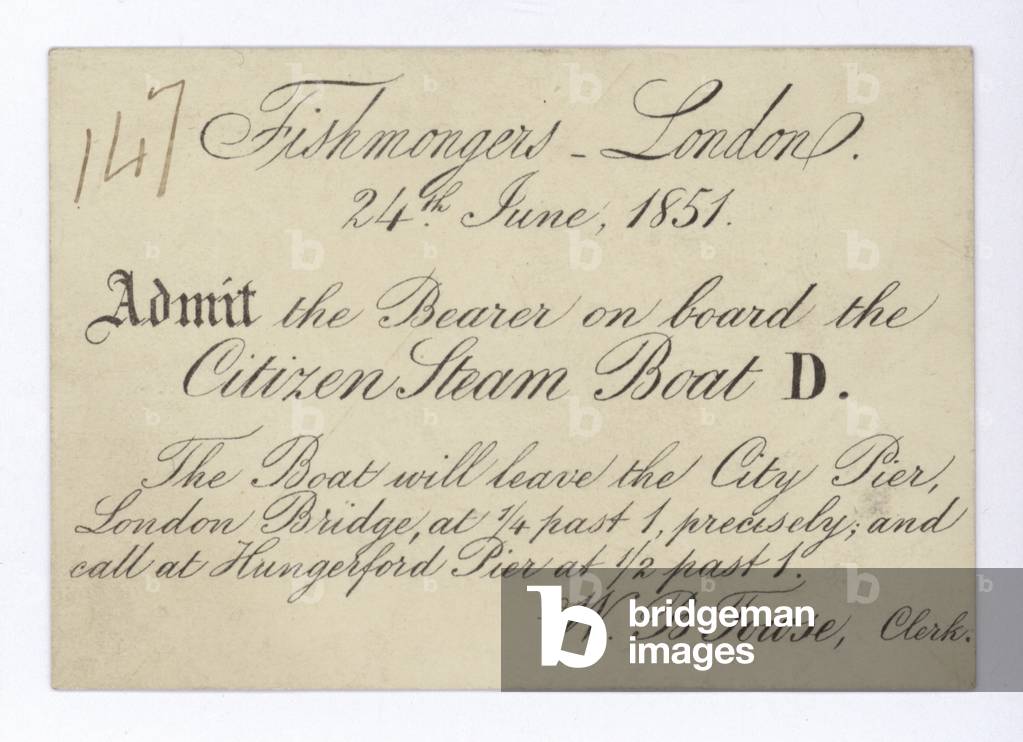 147
Fishmongers - London.
24th. June, 1851.
Admit the Bearer on board the
Citizen Steam Boat D.
The Boat will leave the City Pier,
London Bridge, at 1/4 past 1, precisely; and
call at Hungerford Pier at 1/2 past 1.
W. B Towse, Clerk.
b bridgeman
images